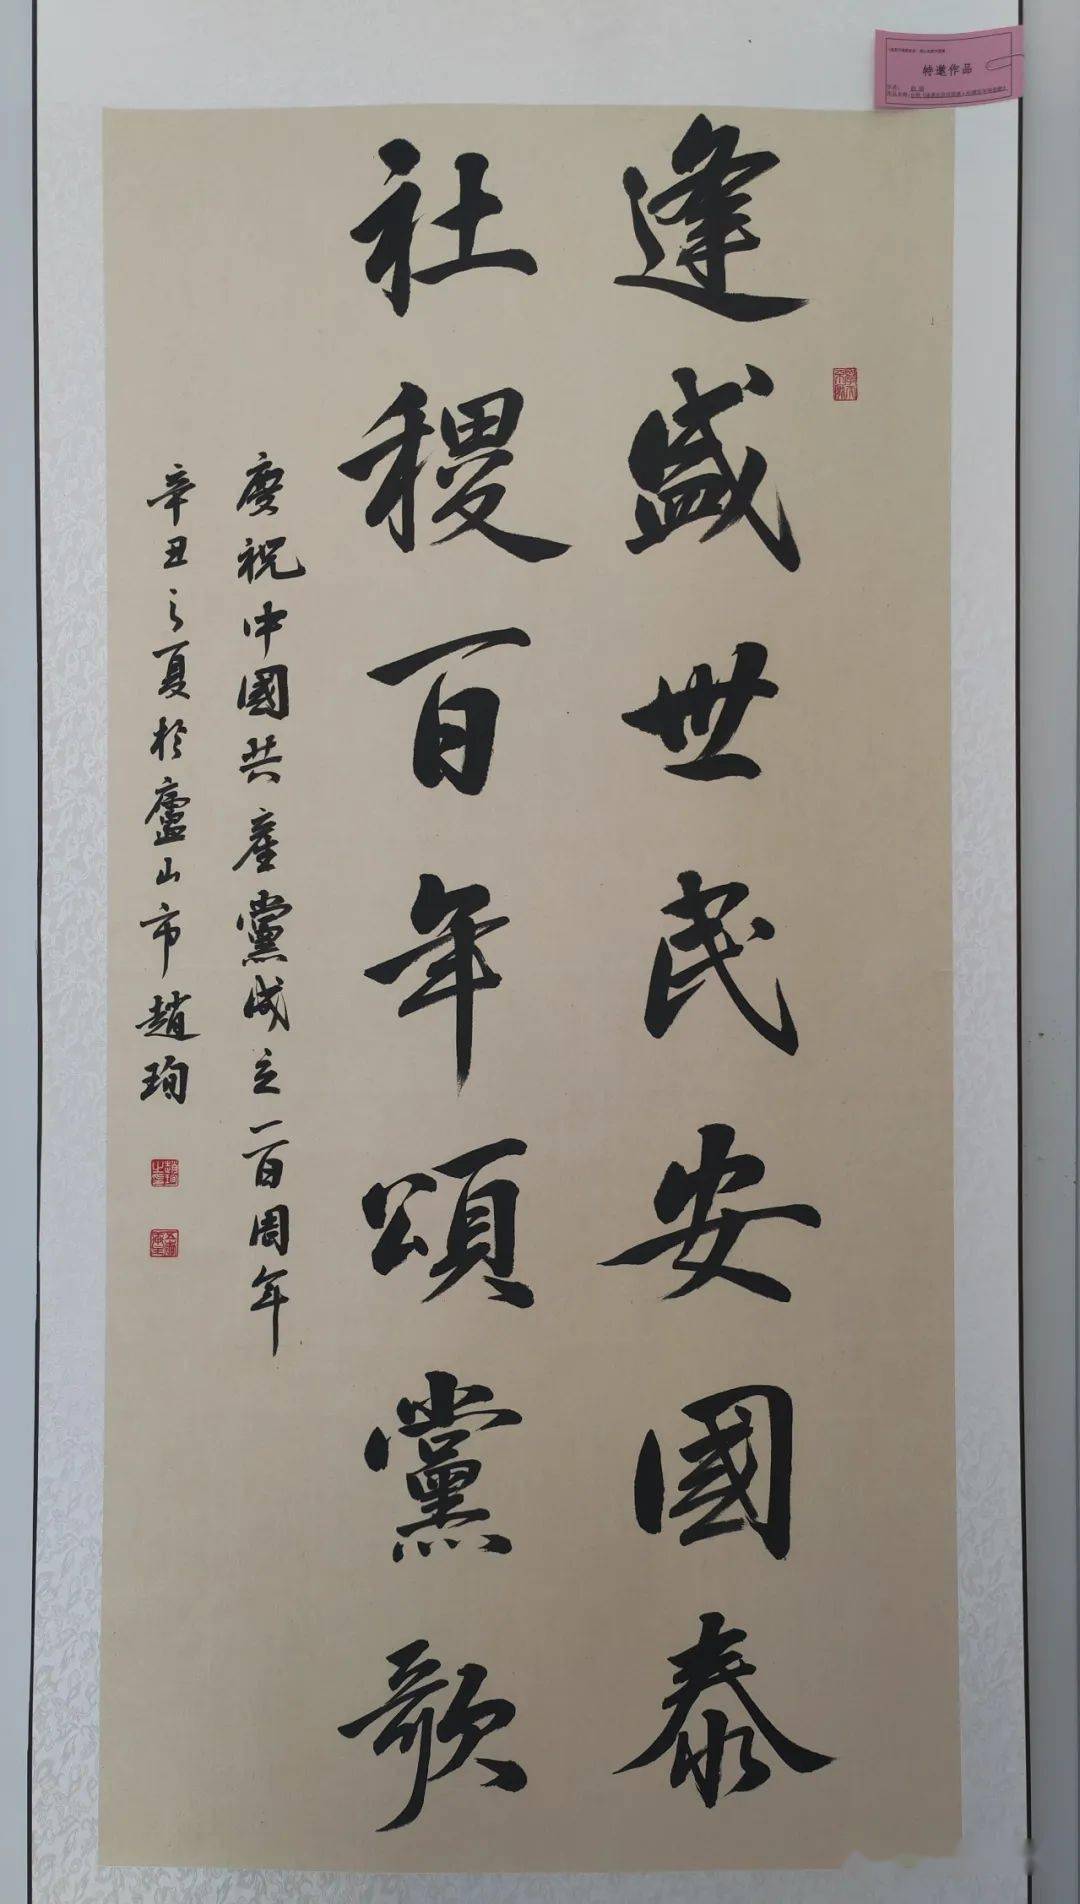 特邀作品
逢盛世民安國泰
社稷百年頌黨歌
慶祝中國共產黨成立一百周年
辛丑之夏於廬山市趙珣